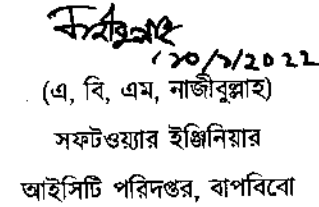 ২০/১/2022
(এ, বি, এম, নাজীবুল্লাহ)
সফটওয়্যার ইঞ্জিনিয়ার
আইসিটি পরিদপ্তর, বাপবিবো